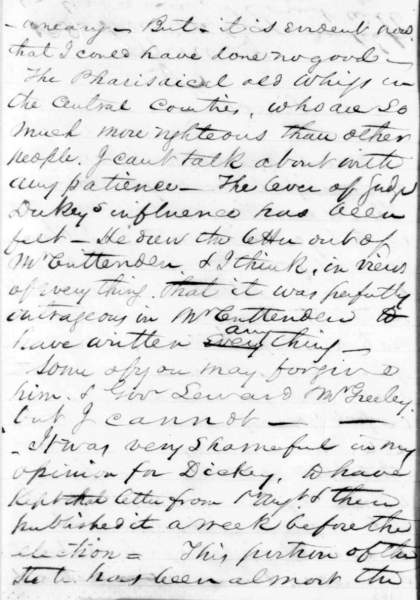 a weary - But - it is evident now
that I could have done no good -
The Pharisaical old Whigs in
the Central Counties, who are so
much more righteous than other
people, I cant talk about with
any patience - The lever of Judge
Dickey's influence has been
felt - He drew the letter out of
Mr Crittenden, & I think, in view
of everything, that it was perfectly
outrageous in Mr Crittenden to
have written any thing -
Some of you may forgive
him, & Gov Seward Mr Greeley,
but I cannot - -
- It was very shameful in my
opinion for Dickey, to have
kept that letter from 1 Augt & then
published it a week before the
election = This portion of the
State has been almost the